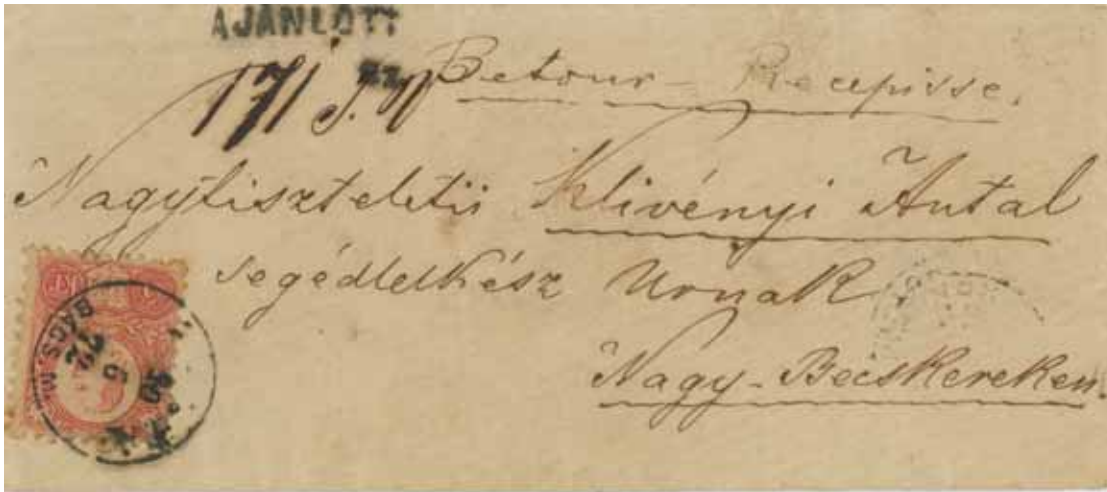 AJÁNLOTT
171
Retour-Recepisse.
Nagytiszteletü Klivényi Antal
Segédlelkész Urnak,
Nagy-Becskereken.
BÁCS M.
72